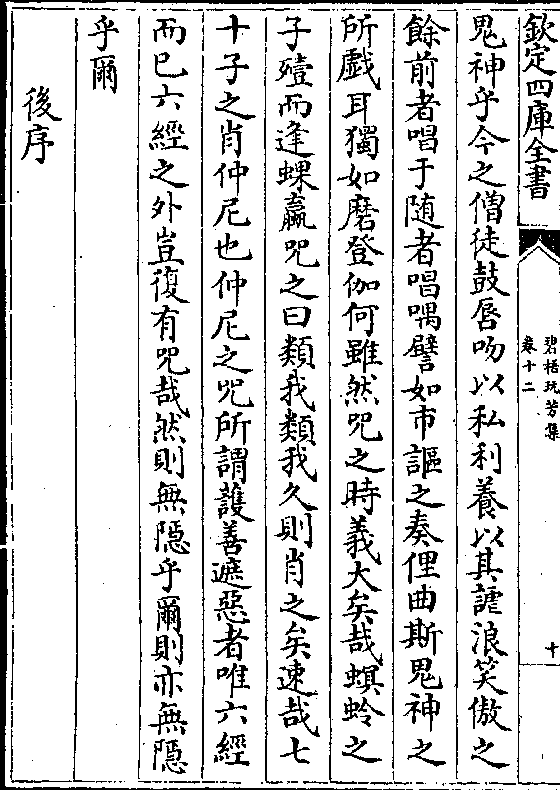 欽定四庫全書
碧梧玩芳集
卷十二
十
鬼神乎今之僧徒鼓唇吻以私利養以其謔浪笑傲之
餘前者唱于随者唱喁譬如市謳之奏俚曲斯鬼神之
所戲耳獨如磨登伽何雖然咒之時義大矣哉螟蛉之
子殪而逢蜾蠃咒之曰類我類我久則肖之矣速哉七
十子之肖仲尼也仲尼之咒所謂護善遮惡者唯六經
而已六經之外豈復有咒哉然則無隠乎爾則亦無隠
乎爾
後序